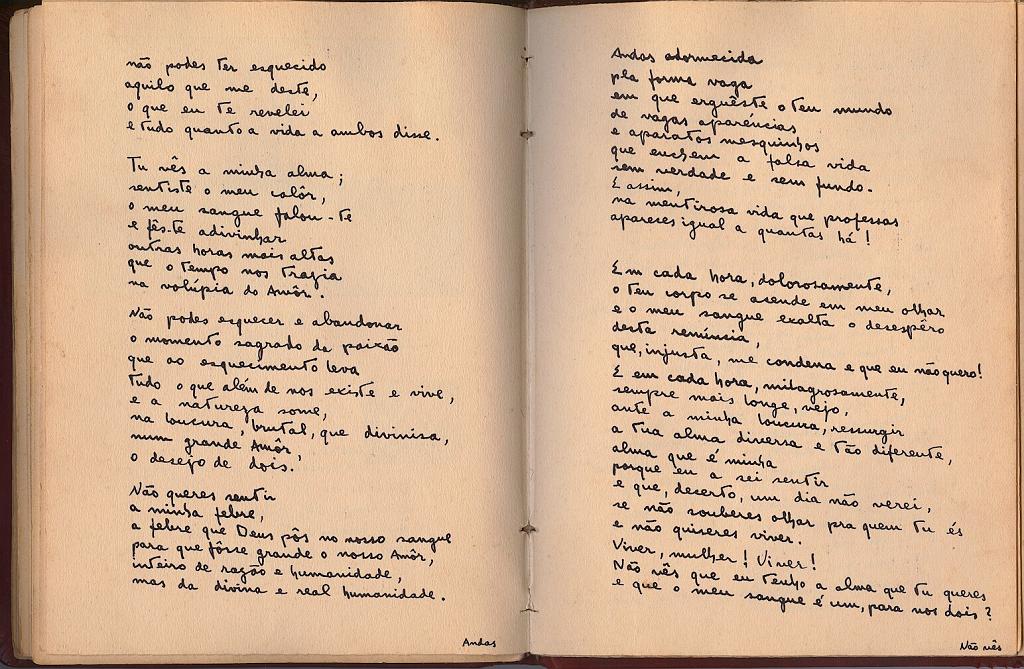 não podes ter esquecido
aquilo que me deste,
o que eu te revelei
e tudo quanto a vida a ambos disse.
Tu vês a minha alma;
sentiste o meu calôr,
o meu sangue falou-te
e fês-te adivinhar
outras horas mais altas
que o tempo nos trazia
na volúpia do Amôr.
Não podes esquecer e abandonar
o momento sagrado da paixão
que ao esquecimento leva
tudo o que além de nos existe e vive,
e a natureza some,
na loucura, brutal, que divinisa,
num grande Amôr,
o desejo de dois.
Não queres sentir
a minha febre,
a febre que Deus pôs no nosso sangue
para que fôsse grande o nosso Amôr,
inteiro de razão e humanidade,
mas da divina e real humanidade.
Andas
Andas adormecida
pla forma vaga
em que erguêste o teu mundo
de vagas aparências
e aparatos mesquinhos
que enchem a falsa vida
sem verdade e sem fundo.
E assim,
na mentirosa vida que professas
apareces igual a quantas há!
Em cada hora, dolorosamente,
o teu corpo se asende em meu olhar
e o meu sangue exalta o desespêro
desta renúnsia,
que, injusta, me condena e que eu não quero!
E em cada hora, milagrosamente,
sempre mais longe, vejo,
ante a minha loucura, ressurgir
a tua alma diversa e tão diferente,
alma que é minha
porque eu a sei sentir
e que, deserto, um dia não verei,
se não souberes olhar pra quem tu és
e não quiseres viver.
Viver, mulher! Viver!
Não vês que eu tenho a alma que tu queres
e que o meu sangue é um, para nos dois?
Não vês